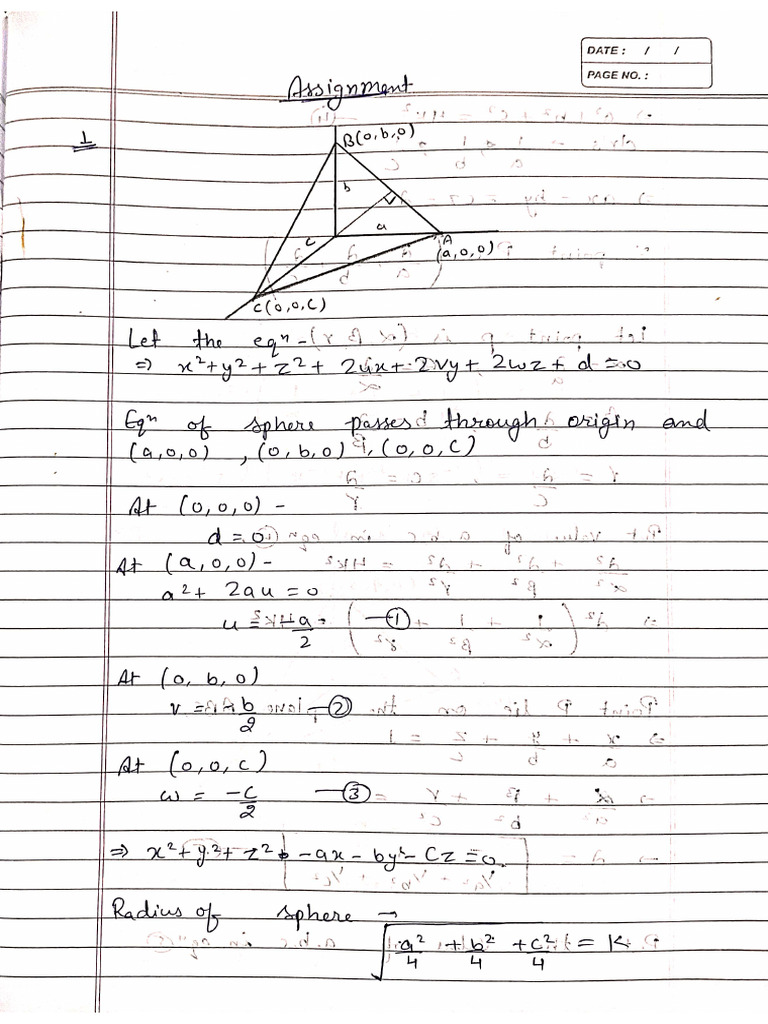 DATE : / /
PAGE NO. :
Assignment
1
B(0,b,0)
b
a
C
A
(a,0,0)
C(0,0,C)
Let the eqⁿ -
⇒ x²+y²+z²+ 2ux+2vy+2wz+d=0
Eqⁿ of sphere passes through origin and
(a,0,0) , (0,b,0) , (0,0,C)
At (0,0,0) -
d=0
At (a,0,0)-
a²+ 2au=0
u = -a/2 —①
At (0, b, 0)
v = -b/2 —②
At (0,0,c)
w = -c/2 —③
⇒ x²+y²+z² -ax-by-Cz=0
Radius of sphere →
√(a²/4 + b²/4 + c²/4) = K